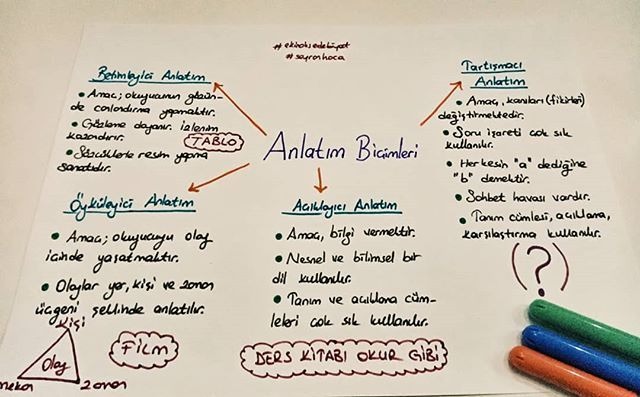 #ekinoksedebiyat
#seyranhoca
Anlatım Biçimleri
Betimleyici Anlatım
• Amaç; okuyucunun gözün-
de canlandırma yapmaktır.
• Gözleme dayanır. izlenim
kazandırır.
TABLO
• Sözcüklerle resim yapma
sanatıdır.
Tartışmacı
Anlatım
• Amaç, kanıları (fikirleri)
değiştirmektedir.
• Soru işareti çok sık
kullanılır.
• Herkesin "a" dediğine
"b" demektir.
• Sohbet havası vardır.
• Tanım cümlesi, açıklama,
karşılaştırma kullanılır.
(?)
Öyküleyici Anlatım
• Amaç; okuyucuyu olay
içinde yaşatmaktır.
• Olaylar yer, kişi ve zaman
üçgeni şeklinde anlatılır.
Kişi
Olay
mekan
zaman
FİLM
Açıklayıcı Anlatım
• Amaç, bilgi vermektir.
• Nesnel ve bilimsel bir
dil kullanılır.
• Tanım ve açıklama cüm-
leleri çok sık kullanılır.
DERS KİTABI OKUR GİBİ